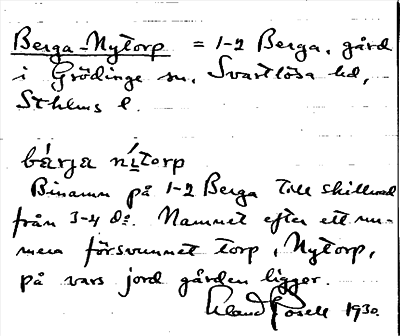 Berga-Nytorp = 1-2 Berga, gård
i Grödinge sn, Svartlösa hd,
Sthlms l.
bárja nítorp
Binamn på 1-2 Berga till skillnad
från 3-4 do. Namnet efter ett nu-
mera försvunnet torp, Nytorp,
på vars jord gården ligger.
1930.